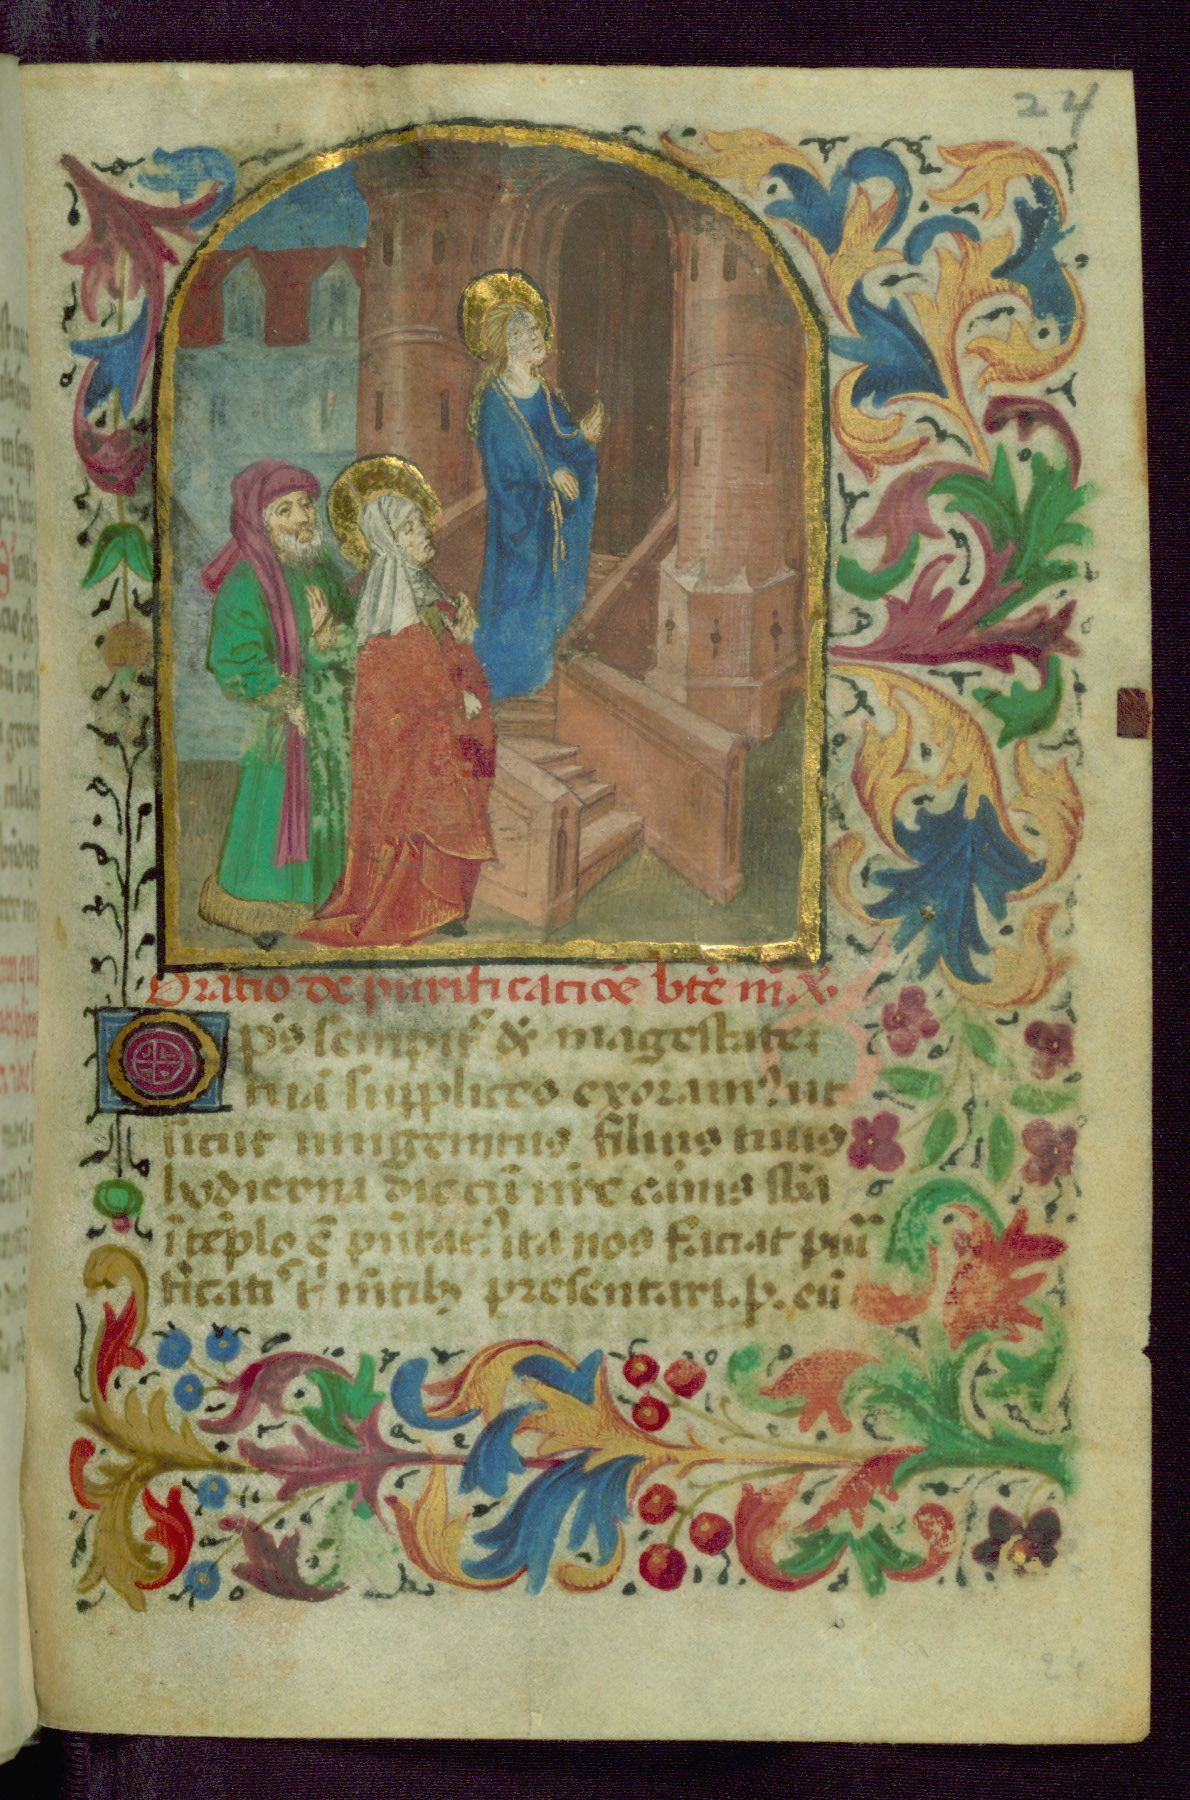 24
Oratio de purificacioē btē m̄. x̄.
Op̄s sempit̄ d̄s magestatez
tuā supplices exoram9 ut
sicut unigenitus filius tuus
hodierna die cū nr̄e carnis sbā
ī tēplo ē p̄ntat9 ita nos faciat puri
ficatis t m̄tib9 presentari. p. eū
24